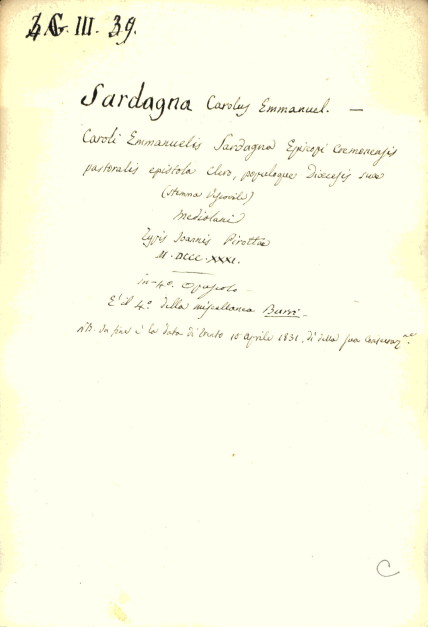 G. III. 39.
Sardagna Carolus Emmanuel. —
Caroli Emmanuelis Sardagna Episcopi Cremonensis
pastoralis epistola Clero, populoque Diœcesis suæ
(stemma Vescovile)
Mediolani
Typis Joannis Pirottæ
M. DCCC. XXXI.
in-4º. Opuscolo
È il 4º. della miscellanea Burri
NB. In fine è la data di 10 aprile 1831, dì della sua
C